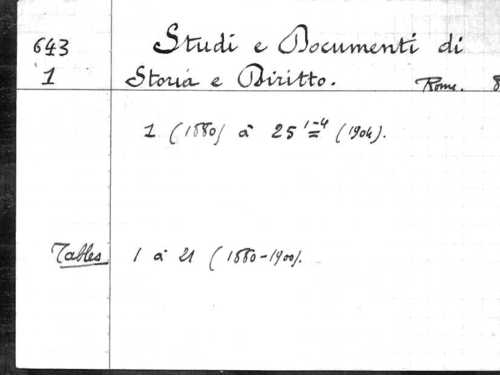 643 Studi e Documenti di
1 Storia e Diritto. Rome. 8
1 (1880) à 25 1-4 (1904).
Tables 1 à 21 (1880-1900).